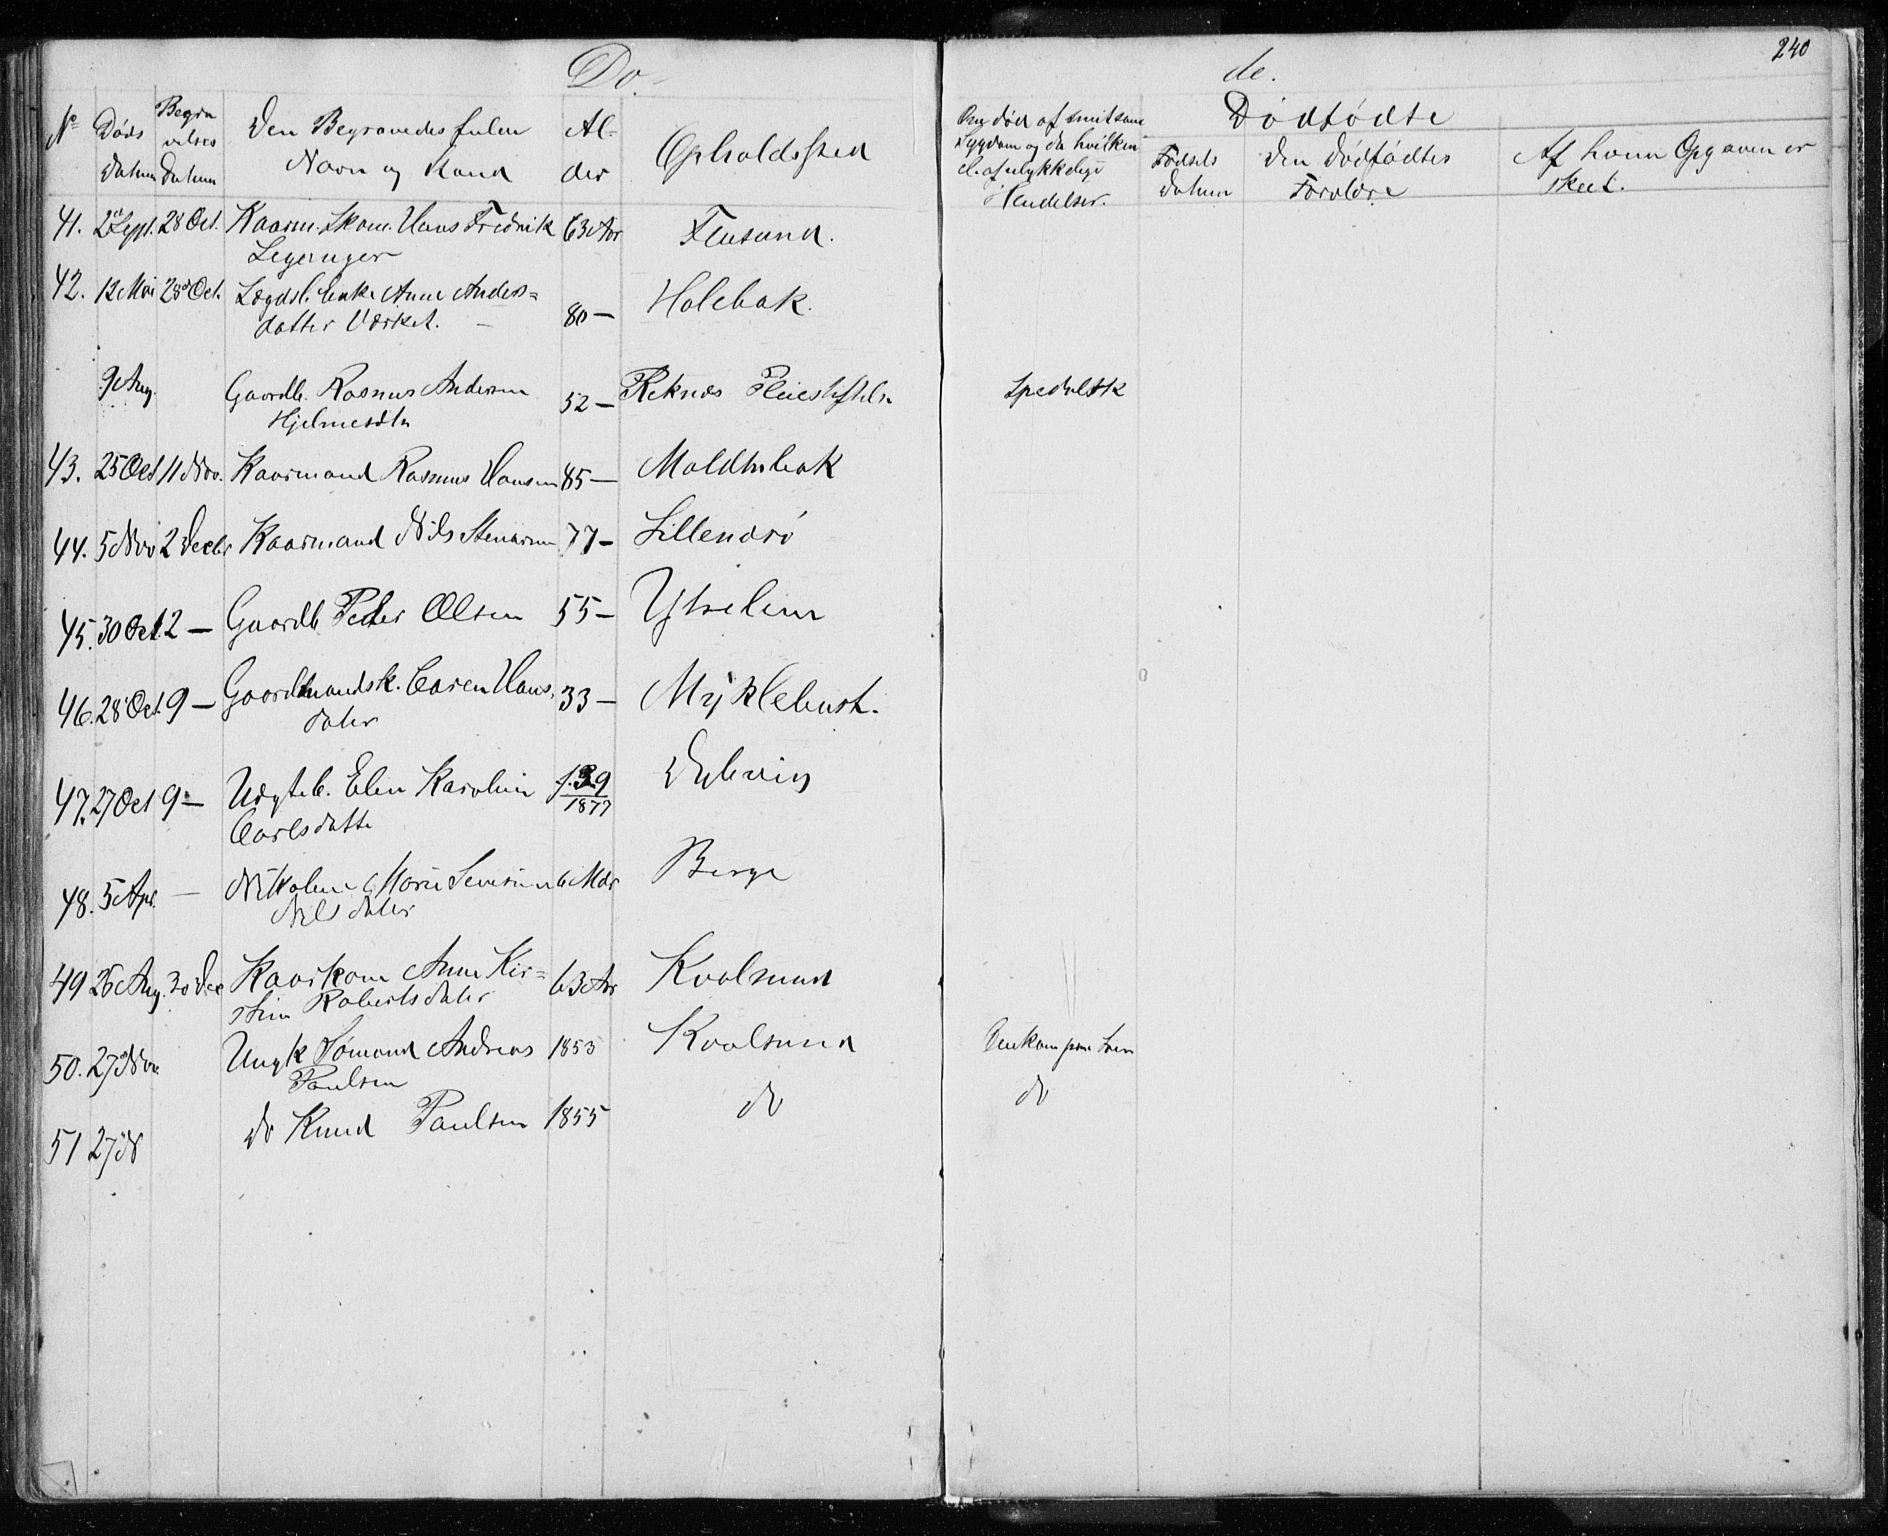 240
Dø-
de.
No Døds Datum Begravelses Datum Den Begravedes fulde Navn og Stand Alder Opholdssted Om død af smitsom Sygdom og da hvilken el. af ulykkelige Hændelser. Dødfødte
Fødsels Datum Den Dødfødtes Forældre Af hvem Opgaven er skeet.
41. 2 Sept. 28 Oct. Kaarm. Hans Fredrik 63 Aar
42. 12 Mai 28 Oct. Lægdsl. Enke Anne Anders=
datter Værket. 80 — Holebak.
9 Aug. Gaardb. Rasmus Andersen
52 — Reknæs Pleiestiftelse Spedalsk
43. 25 Oct 11 Nov. Kaarmand Rasmus Hansen 85 —
44. 5 Nov 2 Decbr Kaarmand Nils 77 —
45. 30 Oct. 2 — Gaardb Peder Olsen 55 —
46. 28 Oct. 9 — Gaardmandsk. Caren Hans
dater 33 — Myklebust.
47. 27 Oct 9 — Elen Karoline 1877
Carlsdatte
48. 5 Apr. — Nikoline Marie 6 Mdr Berge
Nilsdater
49 26 Aug. 30 Dec Kaarkone Anne Kir=
stine Robertsdater 63 Aar Kvalsund
50. 27 Nov. Ungk Sømand Andreas 1853 Kvalsund Omkom paa Søen
Paulsen
51 27 do Knud Paulsen 1855 do do